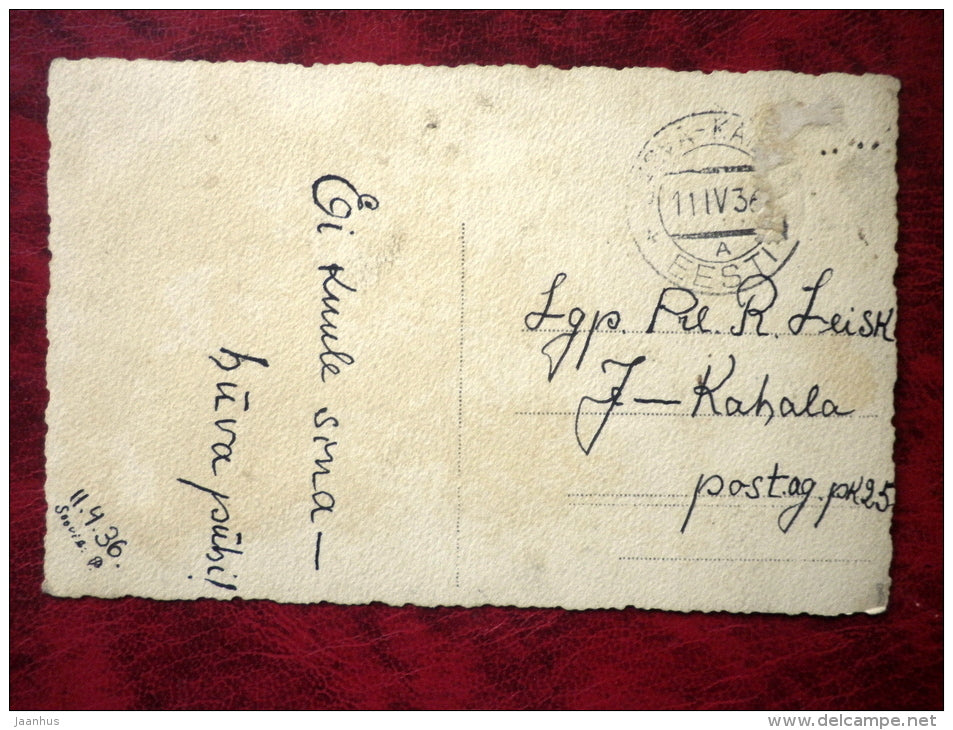 Ei kuule sina –
hüva pühi!
11.4.36.
Soovis.
11 IV 36
A
EESTI
Lgp. Prl. R. Leisk
J – Kahala
post.ag. pk 25
Jaanhus
www.delcampe.net